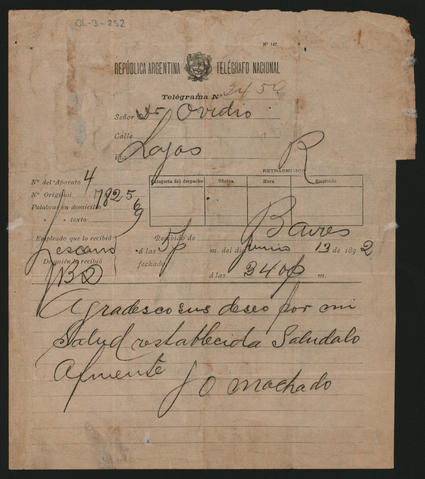 OL-3-252
Nº 147.
REPÚBLICA ARGENTINA TELÉGRAFO NACIONAL
Telégrama Nº 3459
Señor Dr Ovidio
Calle
Lagos R
RETRASMISION
Nº del Aparato 4
Categoria del despacho Oficina Hora Empleado
Nº Original 7825
Palabras en domicilio
" " texto
Baires
Empleado que lo recibió Recibido de
Lescano á las 5p m. del dia junio 13 de 1892
De quien lo recibió fechado
BD á las 240p m.
Agradesco sus deseo por mi
salud restablecida Saludalo
Afmente J O Machado